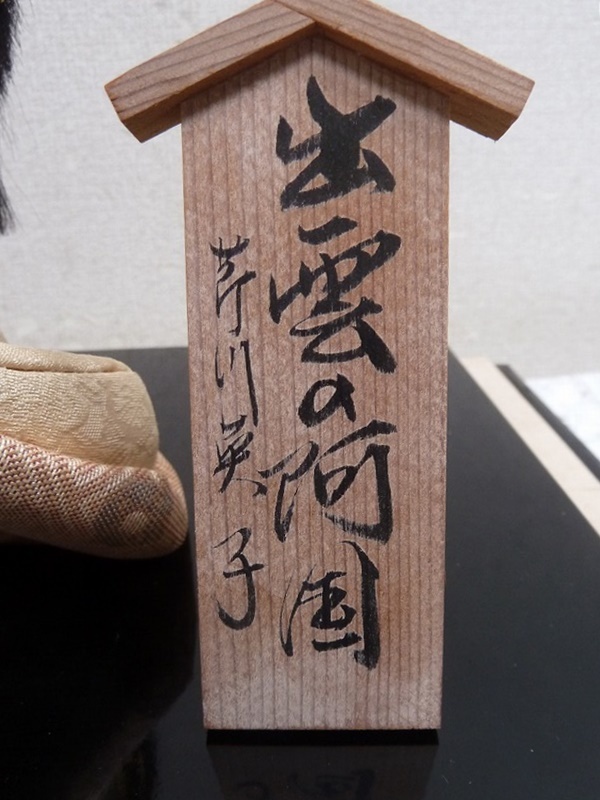 出雲の阿国
芹川英子